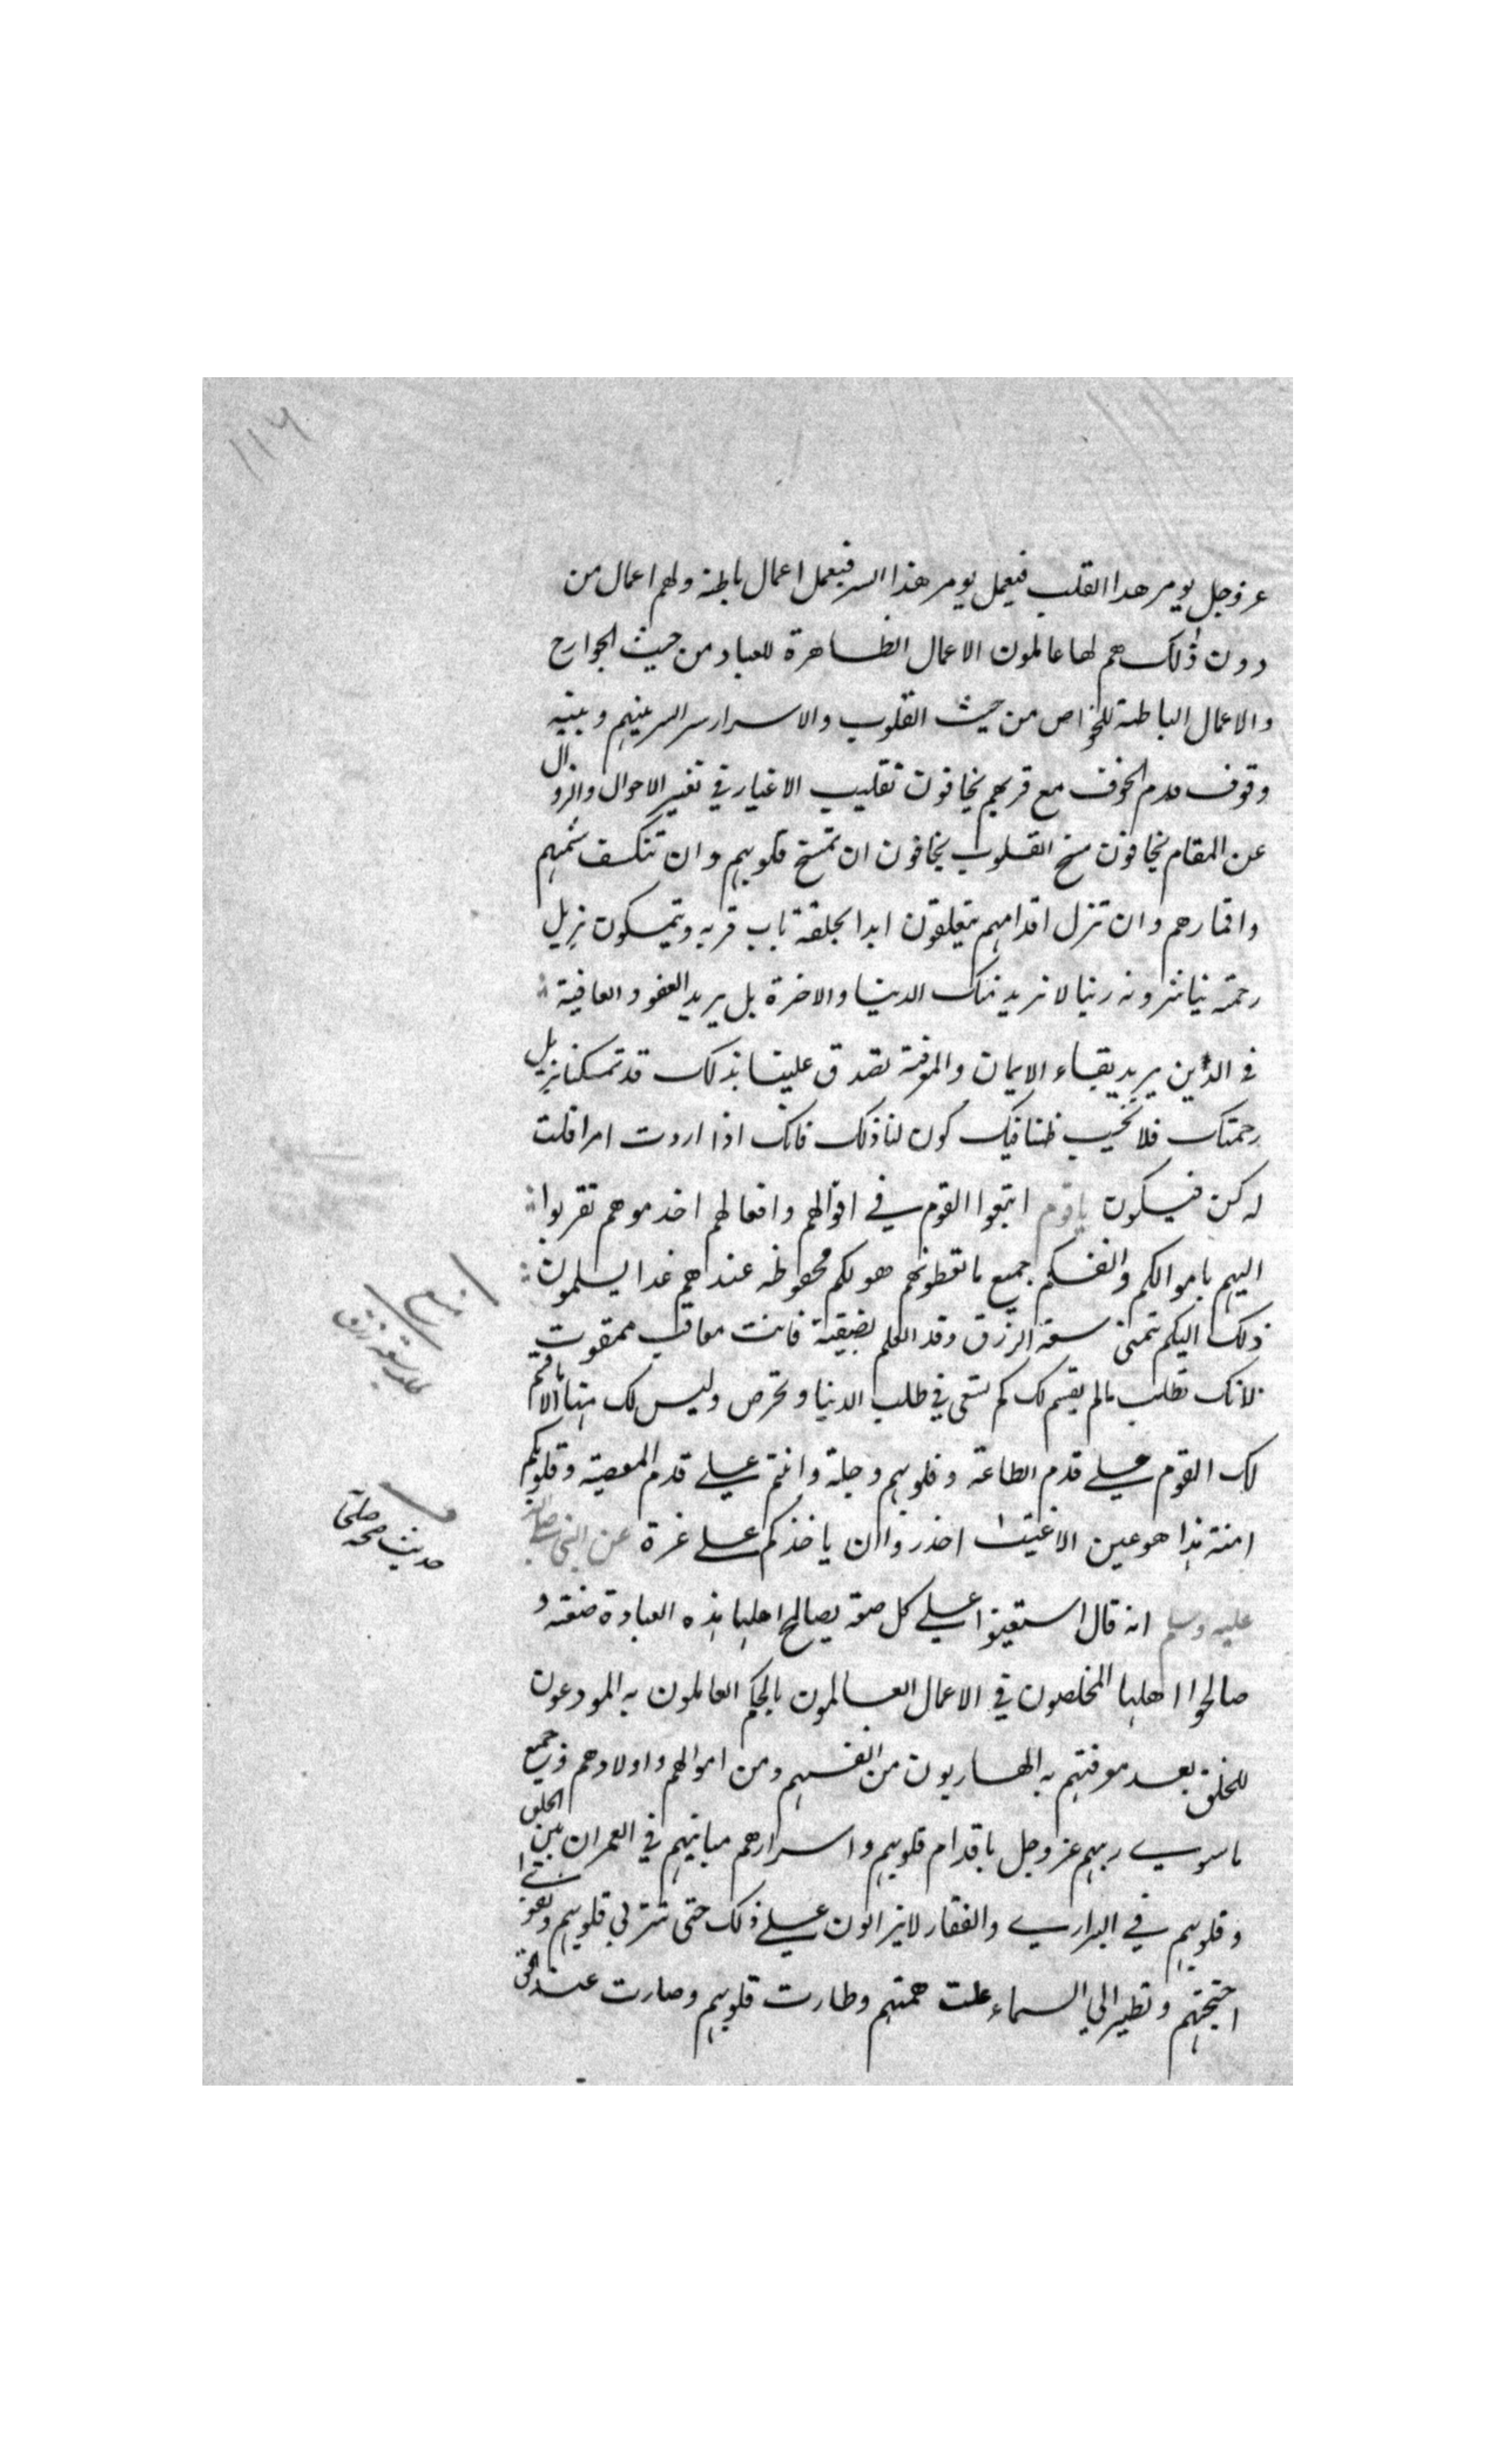 ١١٦
عز وجل يومر هدا القلب فيعمل يومر هذا السر فيعمل اعمال باطنة ولهم اعمال من
دون ذلك هم لها عاملون الاعمال الظاهرة للعباد من حيث الجوارح
والاعمال الباطنة للخواص من حيث القلوب والاسرار سر السر بينهم وبينه
وقوف قدم الخوف مع قربهم يخافون تقليب الاغيار في تغير الاحوال والزوال
عن المقام يخافون مسخ القلوب يخافون ان تمسخ قلوبهم وان تنكسف شمسهم
واقمارهم وان تزل اقدامهم يتعلقون ابدا بحلقة باب قربه ويتمسكون بذيل
رحمته يناشدونه ربنا لا نريد منك الدنيا والاخرة بل نريد العفو والعافية
في الدين نريد بقاء الايمان والمعرفة تصدق علينا بذلك قد تمسكنا بذيل
رحمتك فلا تخيب ظننا فيك كون لنا ذلك فانك اذا اردت امرا قلت
له كن فيكون يا قوم اتبعوا القوم في اقوالهم وافعالهم اخدموهم تقربوا
اليهم باموالكم وانفسكم جميع ما تعطونهم هو لكم محفوظه عندهم غدا يسلمون
ذلك اليكم تتمنى سعة الرزق وقد العلم بضيقية فانت معاقب ممقوت
لانك تطلب ما لم يقسم لك كم تسعى في طلب الدنيا وتحرص وليس لك منها الا ما قسم
لك القوم على قدم الطاعة وقلوبهم وجلة وانتم على قدم المعصية وقلوبكم
امنة هذا هو عين الاغتيا احذروا ان ياخذكم على غرة عن النبي صلى الله
عليه وسلم انه قال استعينوا على كل صنعة بصالح اهلها هذه العبادة صنعته و
صالحوا اهلها المخلصون في الاعمال العالمون بالحكم العاملون به المودعون
للخلق بعد معرفتهم به الهاربون من انفسهم ومن اموالهم واولادهم وجميع
ما سوى ربهم عز وجل باقدام قلوبهم واسرارهم مبانيهم في العمران بين الخلق
وقلوبهم في البراري والقفار لا يزالون على ذلك حتى تتربى قلوبهم وتقوى
اجنحتهم وتطير الى السماء علت همتهم وطارت قلوبهم وصارت عند الحق
طلب سعة رزق
حديث صحه صلحا